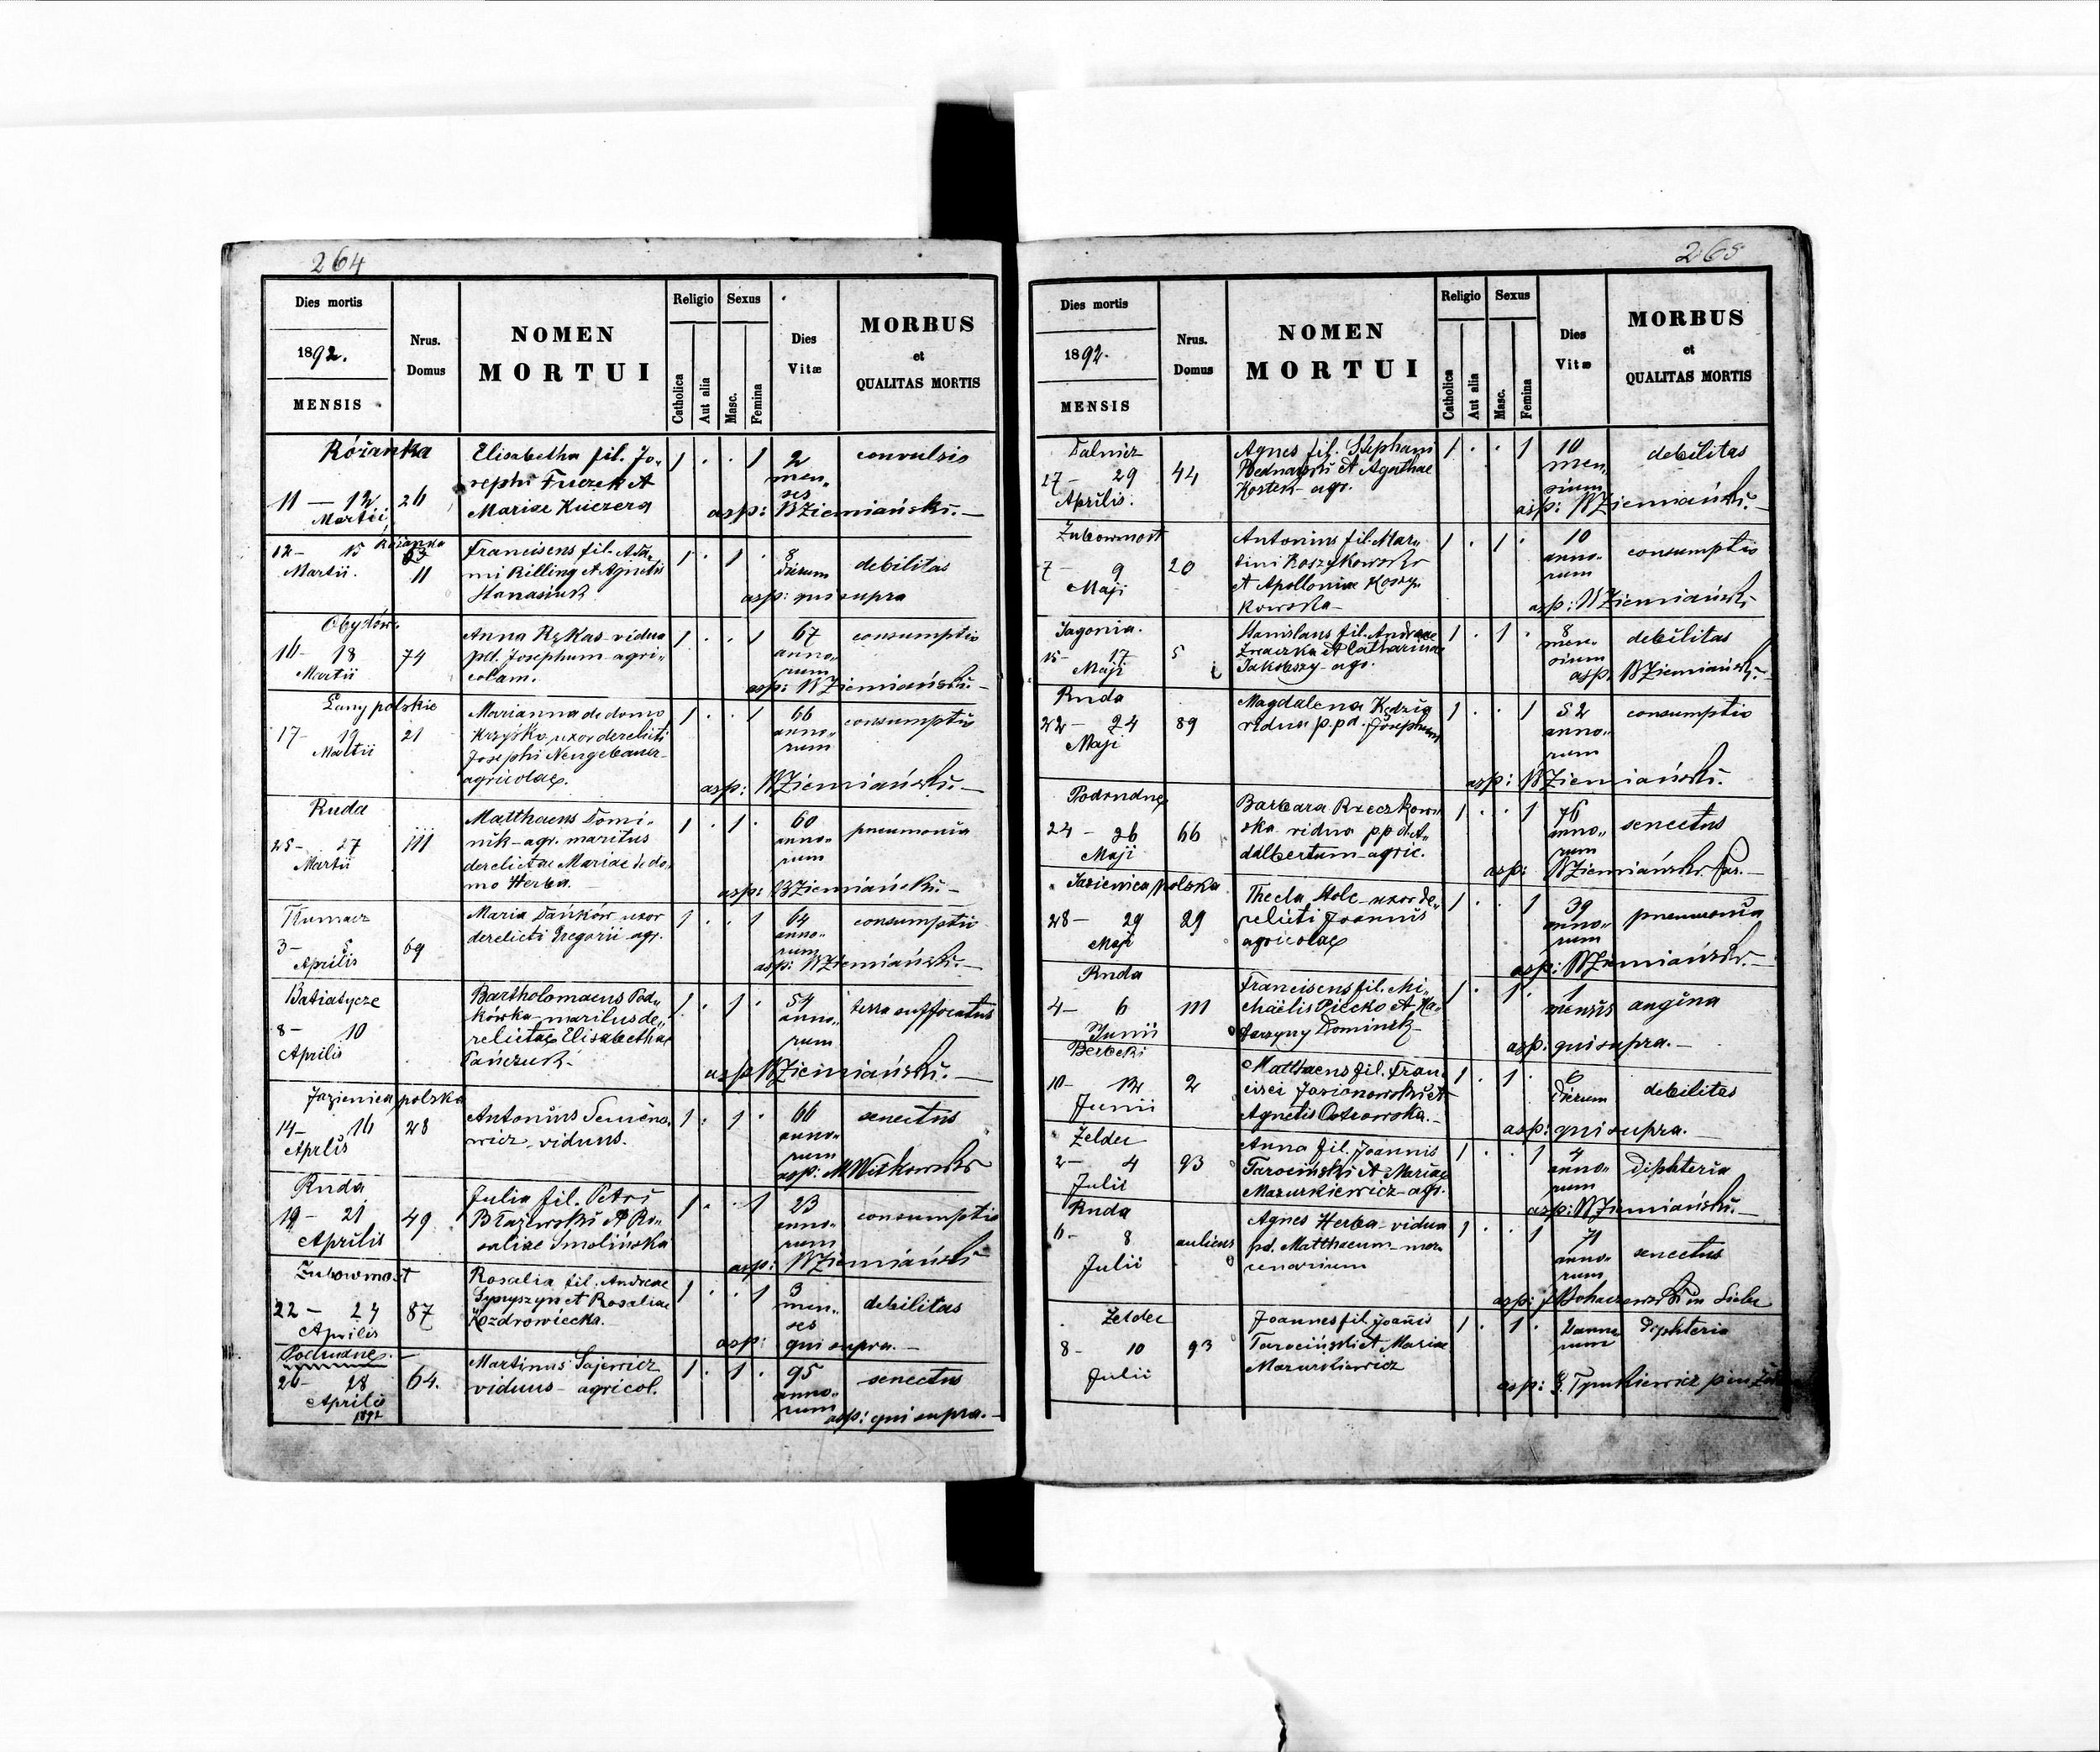 264
Dies mortis
1892.
MENSIS
Nrus. Domus
NOMEN MORTUI
Religio
Catholica
Aut alia
Sexus
Masc.
Femina
Dies Vitæ
MORBUS
et
QUALITAS MORTIS
Różanka
11 — 13 Martii
26
Elisabetha fil. Jo-
sephi Fuczek et
Mariae Kuczera
1 . . 1
2 men-
ses
convulsio
asp: WZiemiański. —
12 — 15 Martii.
Różanka
11
Franciscus fil. Ada-
mi Killing et Agnetis
Stanasiuk
1 . 1 .
8 dierum
debilitas
asp: qui supra
Obydów
16 — 18 Martii
74
Anna Rękas vidua
pd. Josephum agri-
colam.
1 . . 1
67 anno-
rum
consumptio
asp: WZiemiański. —
Łany polskie
17 — 19 Martii
21
Marianna de domo
Krzyśko uxor derelicti
Josephi Neugebauer
agricolae.
1 . . 1
66 anno-
rum
consumptio
asp: WZiemiański. —
Ruda
25 — 27 Martii
111
Matthaeus Domi-
nik — agr. maritus
derelictae Mariae de do-
mo Herba. —
1 . 1 .
60 anno-
rum
pneumonia
asp: WZiemiański. —
Tłumacz
3 — 5 Aprilis
69
Maria Dańków uxor
derelicti Gregorii agr.
1 . . 1
64 anno-
rum
consumptio
asp: WZiemiański. —
Batiatycze
8 — 10 Aprilis
Bartholomaeus Pod-
kówka maritus de-
relictae Elisabethae
Pańczuk.
1 . 1 .
54 anno-
rum
terra suffocatus
asp WZiemiański. —
Jazienica polska
14 — 16 Aprilis
28
Antonius Semeno-
wicz viduus.
1 . 1 .
66 anno-
rum
senectus
asp: MWitkowski
Ruda
19 — 21 Aprilis
49
Julia fil. Petri
Błażewski et Ro-
saliae Smolińska
1 . . 1
23 anno-
rum
consumptio
asp: WZiemiański
Zubowmost
22 — 24 Aprilis
87
Rosalia fil. Andreae
et Rosaliae
Kozdrowiecka.
1 . . 1
3 men-
ses
debilitas
asp: qui supra. —
Podrudne. —
26 — 28 Aprilis 1892
64.
Martinus Sajewicz
viduus — agricol.
1 . 1 .
95 anno-
rum
senectus
asp: qui supra. —
265
Dies mortis
1892.
MENSIS
Nrus. Domus
NOMEN MORTUI
Religio
Catholica
Aut alia
Sexus
Masc.
Femina
Dies Vitæ
MORBUS
et
QUALITAS MORTIS
Dalnicz
27 — 29 Aprilis.
44
Agnes fil. Stephani
Bednarski et Agathae
Kostek agr.
1 . . 1
10 men-
sium
debilitas
asp: WZiemiański. —
Zubowmost
7 — 9 Maji
20
Antonius fil. Mar-
tini Koszykowski
et Apolloniae Koszy-
kowska —
1 . 1 .
10 anno-
rum
consumptio
asp: WZiemiański
Jagonia.
15 — 17 Maji
5
Stanislaus fil. Andreae
et Catharinae
agr.
1 . 1 .
8 men-
sium
debilitas
asp. WZiemiański. —
Ruda
22 — 24 Maji
89
Magdalena Kędzio
vidua p. pd. Josephum
1 . . 1
52 anno-
rum
consumptio
asp: WZiemiański.
Podrudne
24 — 26 Maji
66
Barbara Rzeczkow-
ska vidua pp d. A-
dalbertum agric.
1 . . 1
76 anno-
rum
senectus
asp: WZiemiański Par. —
Jazienica polska
28 — 29 Maji
29
Thecla Stolc uxor de-
relicti Joannis
agricolae
1 . . 1
39 anno-
rum
pneumonia
asp: WZiemiański. —
Ruda
4 — 6 Junii
111
Franciscus fil. Mi-
chaëlis Piecko et Ka-
tarzyny Dominik —
1 . 1 .
1 mensis
angina
asp: qui supra. —
Berbeki
10 — Junii
2
Matthaeus fil. Fran-
cisci Jasianowski et
Agnetis Ostrowska. —
1 . 1 .
6 dierum
debilitas
asp: qui supra. —
Żeldec
2 — 4 Julii
93
Anna fil. Joannis
Tarociński et Mariae
Mazurkiewicz agr.
1 . . 1
4 anno-
rum
Diphteria
asp: WZiemiański. —
Ruda
6 — 8 Julii
aulicus
Agnes Herba vidua
pd. Matthaeum mer-
cenarium
1 . . 1
71 anno-
rum
senectus
asp:
Żeldec
8 — 10 Julii
93
Joannes fil. Joanis
Tarociński et Mariae
Mazurkiewicz
1 . 1 .
2 anno-
rum
Diphteria
asp: